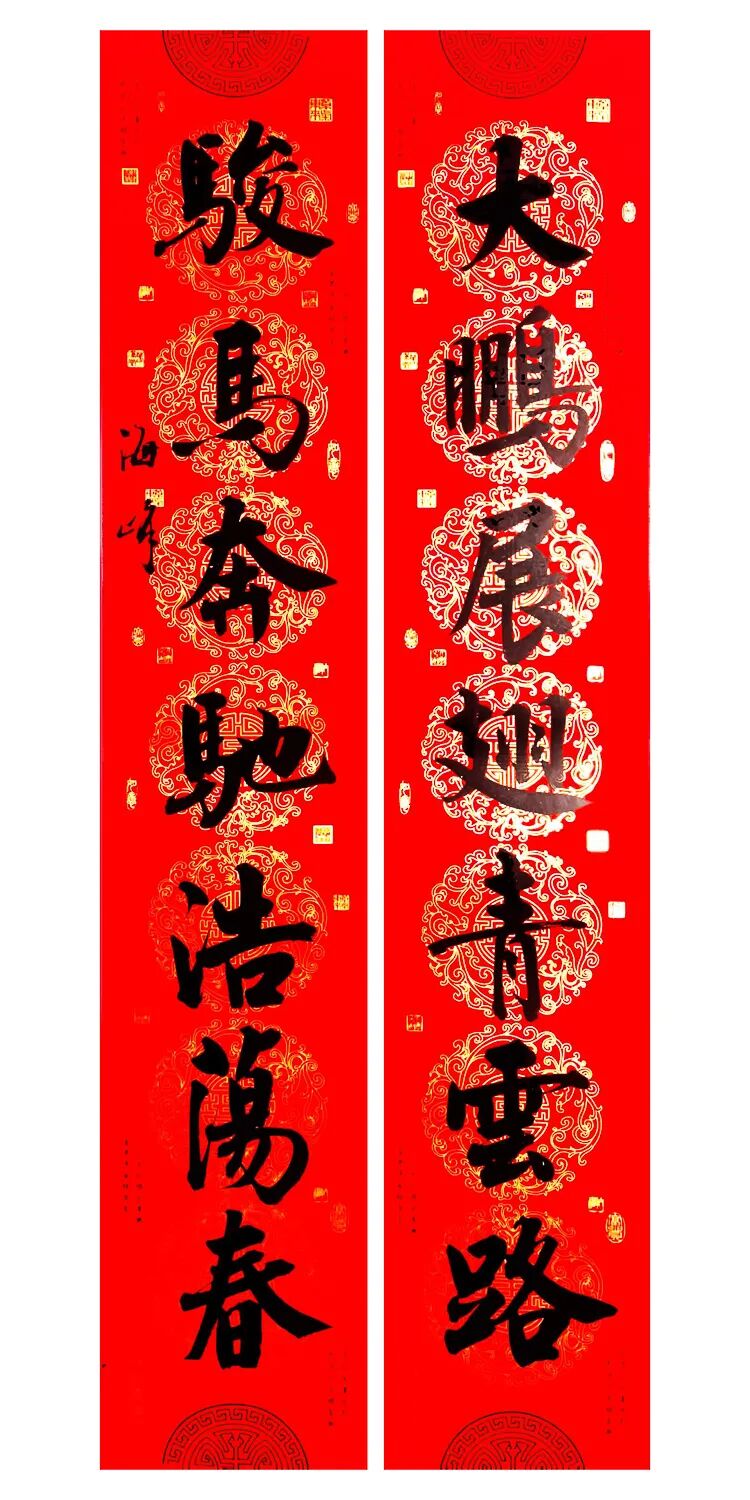 大鵬展翅青雲路
駿馬奔馳浩蕩春
海峰